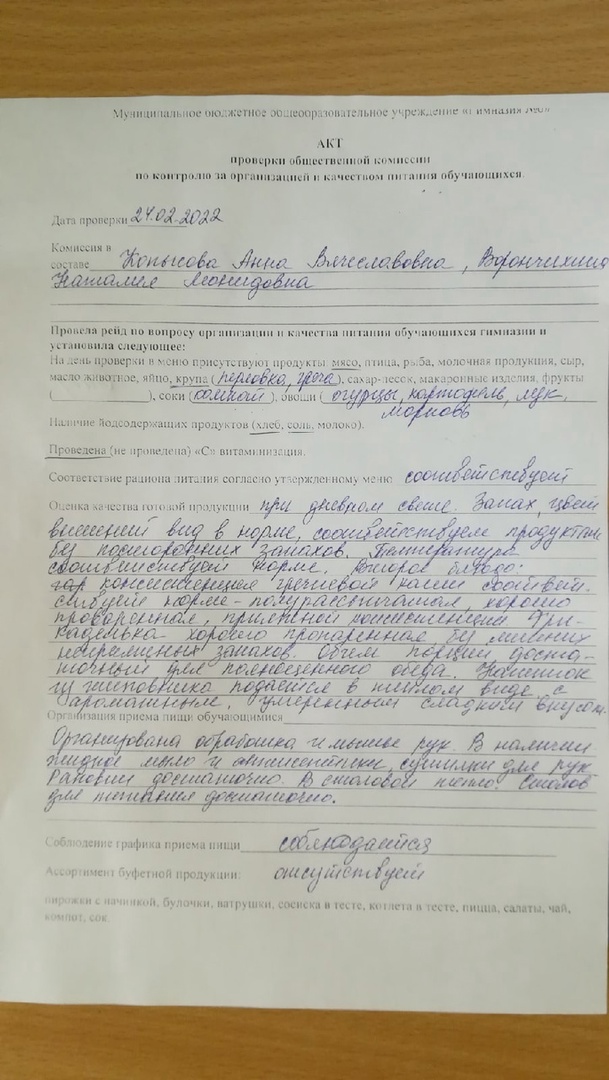 Муниципальное бюджетное общеобразовательное учреждение «Гимназия №6»
АКТ
проверки общественной комиссии
по контролю за организацией и качеством питания обучающихся.
Дата проверки 24.02.2022
Комиссия в
составе Копысова Анна Вячеславовна, Ворончихина
Наталия Леонидовна
Провела рейд по вопросу организации и качества питания обучающихся гимназии и
установила следующее:
На день проверки в меню присутствуют продукты: мясо, птица, рыба, молочная продукция, сыр,
масло животное, яйцо, крупа (перловка, греча), сахар-песок, макаронные изделия, фрукты
( ), соки ( ), овощи (огурцы, картофель, лук,
морковь
Наличие йодсодержащих продуктов (хлеб, соль, молоко).
Проведена (не проведена) «С» витаминизация.
Соответствие рациона питания согласно утвержденному меню соответствует
Оценка качества готовой продукции при дневном свете. Запах, цвет
внешний вид в норме, соответствуем продуктам
без посторонних запахов. Температура
соответствует норме. Второе блюдо:
консистенция гречневой каши соответ.
ствует норме - полурассыпчатая, хорошо
проваренная, приятной консистенции. Фри-
каделька - хорошо пропаренная без лишних
неприятных запахов. Объем порции доста-
точный для полноценного обеда. Напиток
из шиповника подается в теплом виде с
ароматным, умеренным сладким вкусом.
Организация приема пищи обучающимися
Организована обработка и мытье рук. В наличии
жидкое мыло и антисептики, сушилки для рук
Раковин достаточно. В столовой тепло. Столов
для питания достаточно.
Соблюдение графика приема пищи соблюдается
Ассортимент буфетной продукции: отсутствует
пирожки с начинкой, булочки, ватрушки, сосиска в тесте, котлета в тесте, пицца, салаты, чай,
компот, сок.